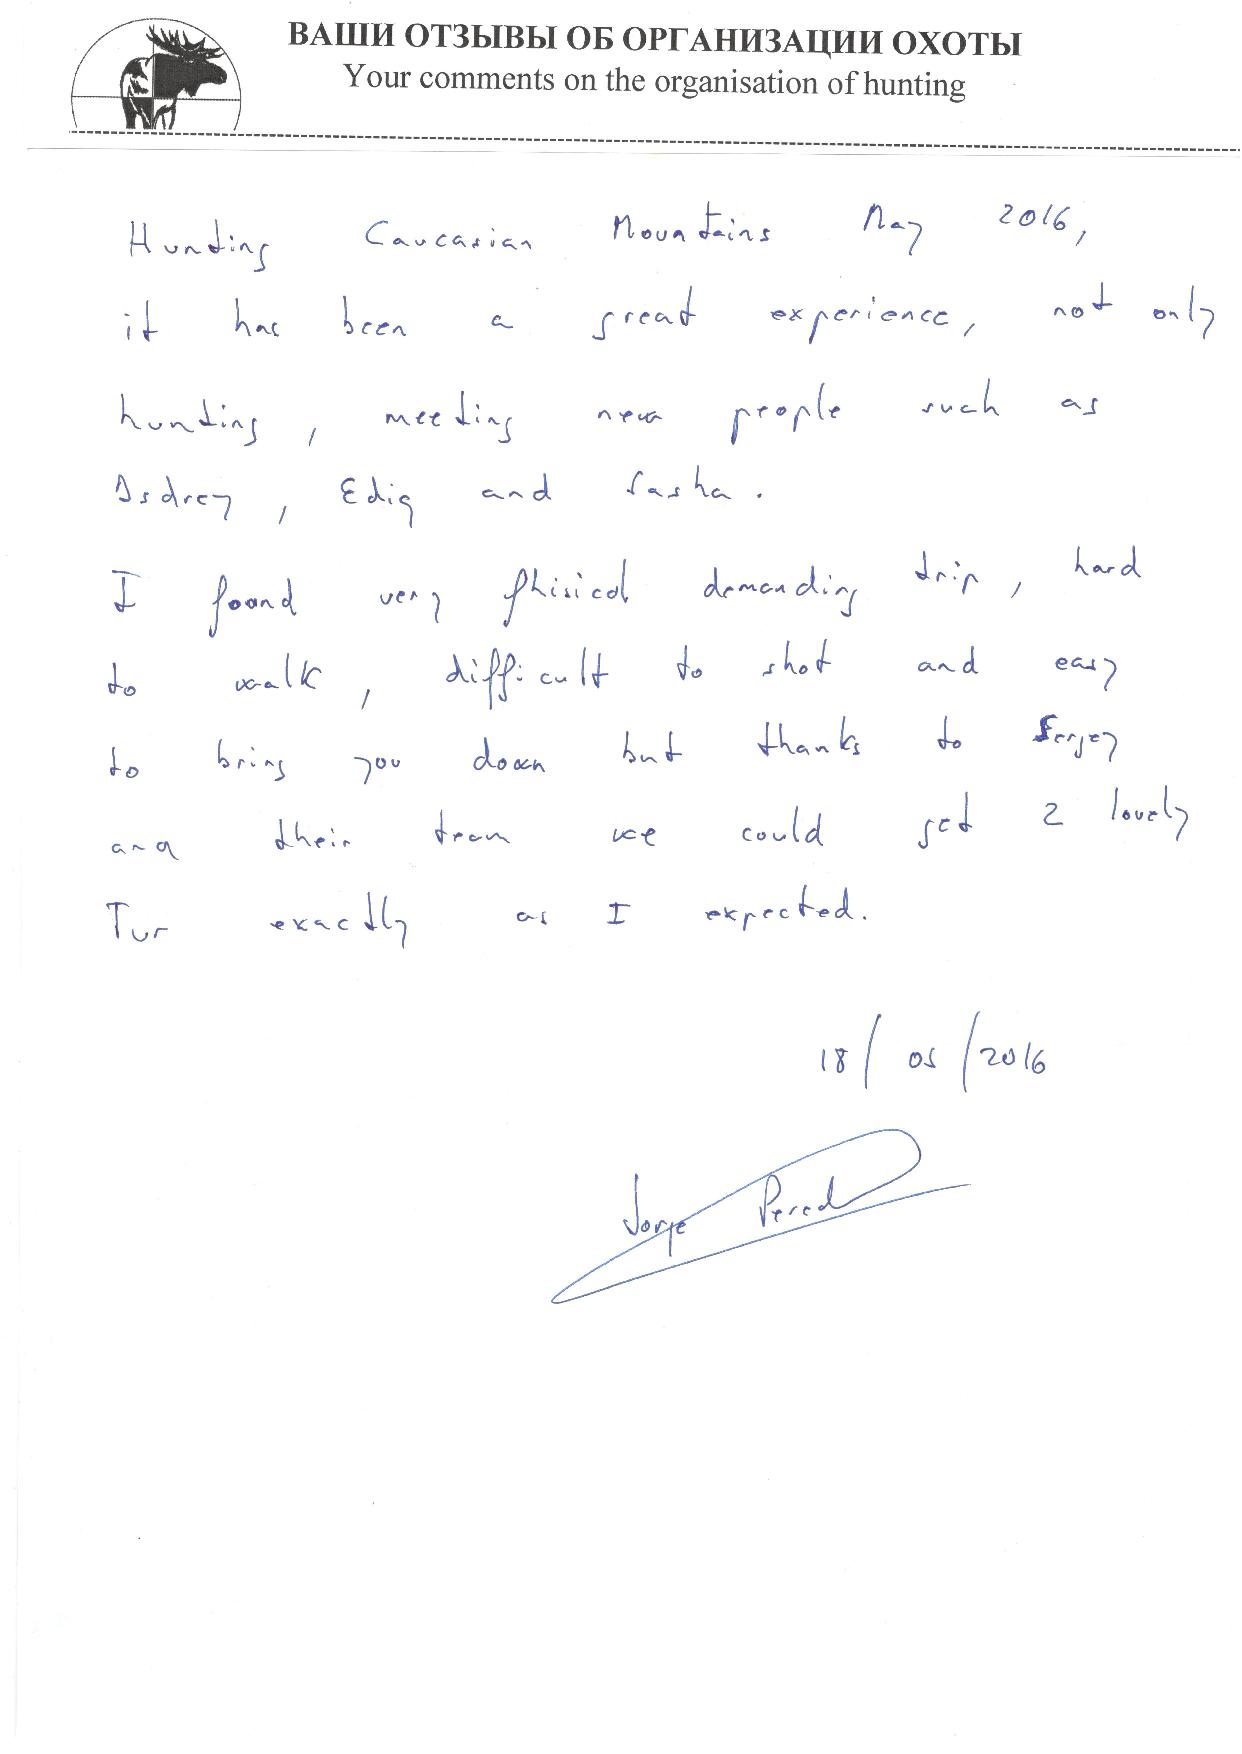 ВАШИ ОТЗЫВЫ ОБ ОРГАНИЗАЦИИ ОХОТЫ
Your comments on the organisation of hunting
Hunting Caucasian Mountains May 2016,
it has been a great experience, not only
hunting, meeting new people such as
, Edig and Sasha.
I foond very phisicol demanding trip, hard
to walk, difficult to shot and easy
to bring you down but thanks to Sergey
and their team we could get 2 lovely
Tur exactly as I expected.
18/05/2016
Jorge